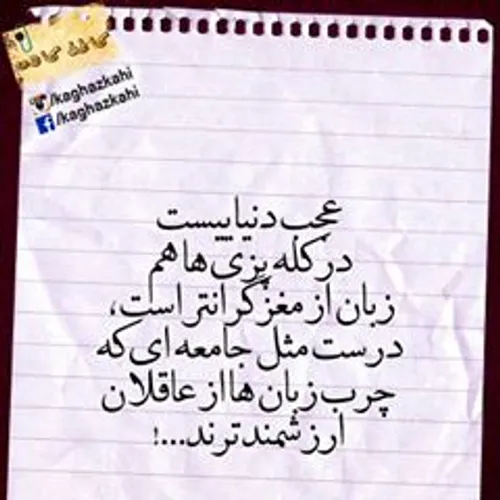 کاغذ کاهی
/kaghazkahi
/kaghazkahi
عجب دنیاییست
در کله پزی ها هم
زبان از مغز گرانتر است،
درست مثل جامعه ای که
چرب زبان ها از عاقلان
ارزشمندترند...!